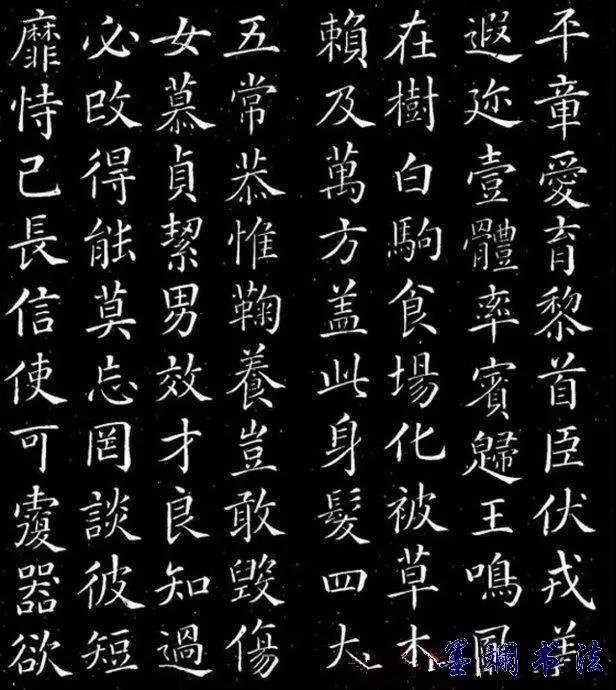 平章愛育黎首臣伏戎羌
遐迩壹體率賓歸王鳴鳳
在樹白駒食場化被草木
賴及萬方盖此身髮四大
五常恭惟鞠養豈敢毀傷
女慕貞絜男效才良知過
必改得能莫忘罔談彼短
靡恃己長信使可覆器欲
墨斓书法